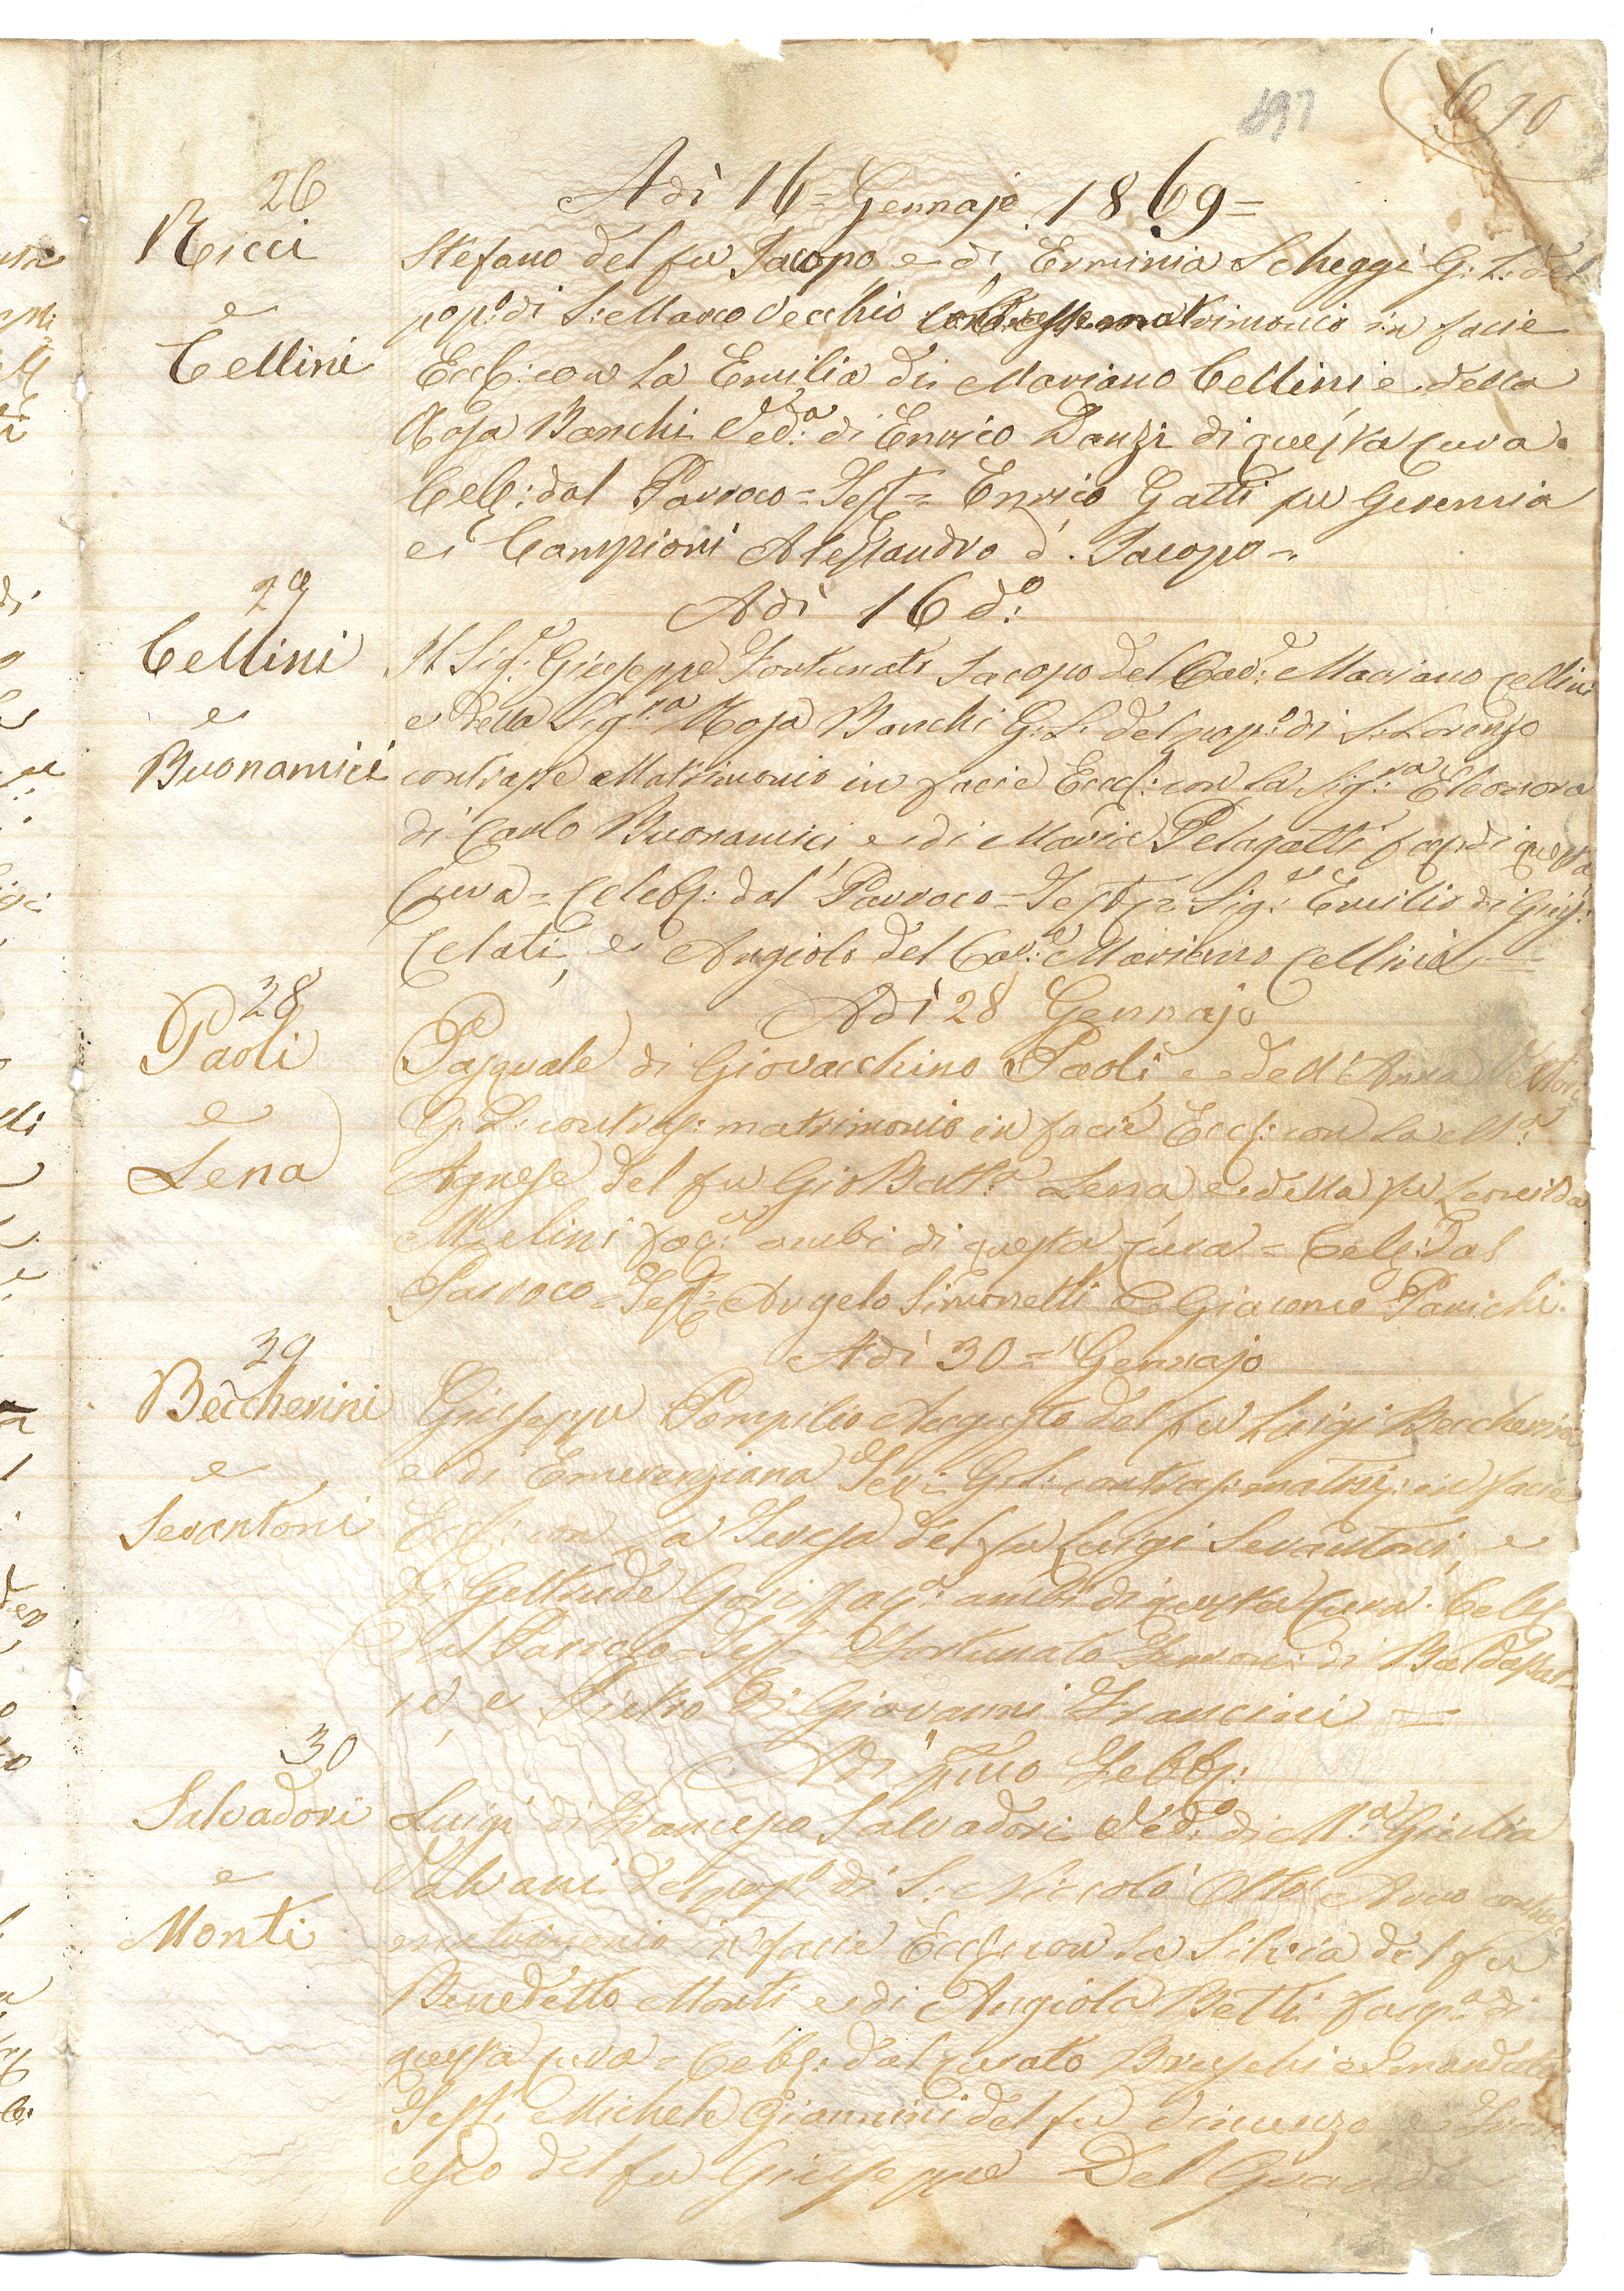 690
26
Adì 16 = Gennajo 1869 =
Ricci
e
Cellini
Stefano del fu Jacopo e di Erminia Scheggi G. L. del
pop.º di S. Marco Vecchio contrasse matrimonio in facie
Eccl: con la Emilia di Mariano Cellini e della
Rosa Banchi Ved.ª di Enrico Danzi di questa cura.
Celeb: dal Parroco = Test = Enrico Gatti fu Geremia
e Campioni Alessandro d. Jacopo =
27
Adì 16 dº:
Cellini
e
Buonamici
Il Sig.r Giuseppe Fortunato Jacopo del Cav.e Mariano Cellini
e della Sig.ra Rosa Banchi G. L. del pop.º di S. Lorenzo
contrasse Matrimonio in facie Eccl: con la Sig.ra Eleonora
di Carlo Buonamici e di Maria Pelagatti di questa
Cura = Celeb: dal Parroco = Test = Sig.r Emilio di Gius:
Celati, e Angiolo del Cav.e Mariano Cellini =
28
Adì 28 Gennajo
Paoli
e
Lena
Pasquale di Giovacchino Paoli e dell'Anna
G. L. contras: matrimonio in facie Eccl: con la Mª:
Agnese del fu Gio Battª Lena e della fu
ambi di questa cura = Celeb: dal
Parroco = Test = Angelo Simonetti e Giacomo Parichi.
29
Adì 30 = Gennajo
Beccherini
e
Serantoni
Giuseppe Pompilio Augusto del fu Luigi Beccherini
e di Emerenziana G. L. contras: matri: in facie
Eccl: con la Teresa del fu Luigi Serantoni, e
di Geltrude Gori ambi di questa cura. Celeb
dal Parroco = Test = Fortunato di Baldassar-
re e Pietro di Giovanni Francini =
30
Adì Pmo Febb:
Salvadori
e
Monti
Luigi di Francesco Salvadori Ved.º di M.ª Giulia
Galvani del pop.º di S. Niccolò Oltr'Arno
matrimonio in facie Eccl: con la Silvia del fu
Benedetto Monti e di Angiola Betti di
questa cura = Celeb: dal curato Bruschi
Test: Michele Giannini del fu Vincenzo e Fran
cesco del fu Giuseppe Del Grande